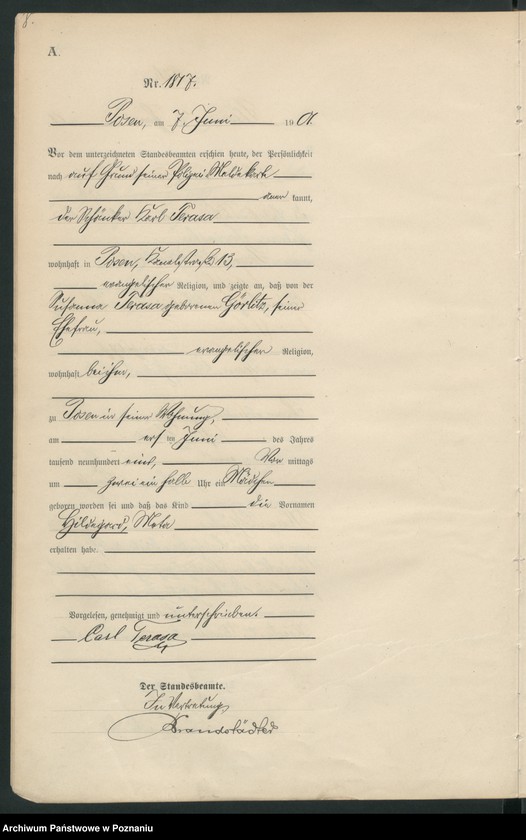 8.
A.
Nr. 1817.
Posen, am 7. Juni 19 01.
Vor dem unterzeichneten Standesbeamten erschien heute, der Persönlichkeit
nach auf Grund seiner Polizei-Meldekarte
kannt,
der Schänker Karl Terasa
wohnhaft in Posen, 13,
evangelischer Religion, und zeigte an, daß von der
Susanna Terasa geborenen Görlitz, seiner
Ehefrau,
evangelischer Religion,
wohnhaft bei ihm,
zu Posen in seiner Wohnung,
am ten Juni des Jahres
tausend neunhundert eins, Vor mittags
um zwei ein halb Uhr ein Mädchen
geboren worden sei und daß das Kind die Vornamen
Hildegard, Meta
erhalten habe.
Vorgelesen, genehmigt und unterschrieben.
Carl Terasa
Der Standesbeamte.
In Vertretung
Brandstädter
Archiwum Państwowe w Poznaniu